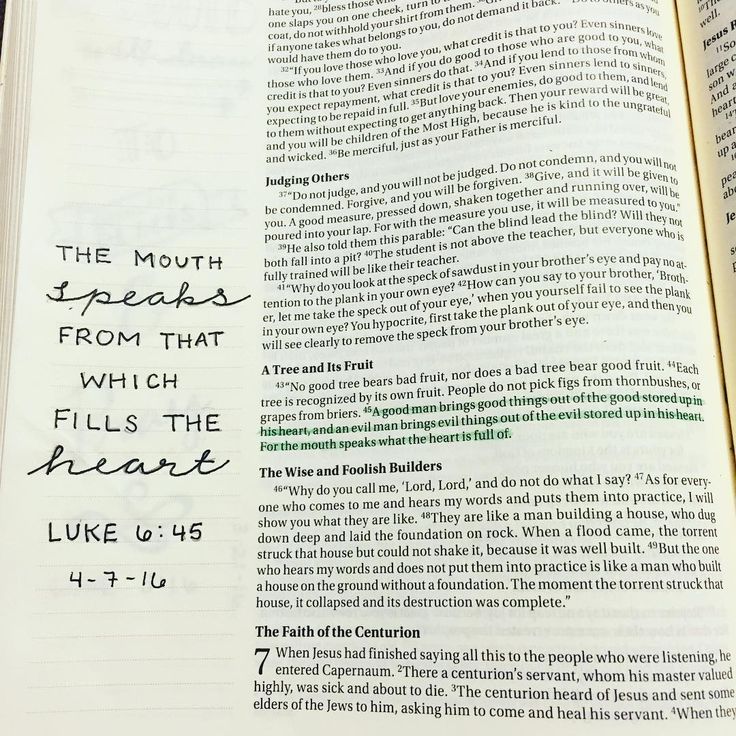 hate you, 28bless those who
one slaps you on one cheek, turn t
coat, do not withhold your shirt from them.
if anyone takes what belongs to you, do not demand it back. Do to others as you
would have them do to you.
32"If you love those who love you, what credit is that to you? Even sinners love
those who love them. 33And if you do good to those who are good to you, what
credit is that to you? Even sinners do that. 34And if you lend to those from whom
you expect repayment, what credit is that to you? Even sinners lend to sinners,
expecting to be repaid in full. 35But love your enemies, do good to them, and lend
to them without expecting to get anything back. Then your reward will be great,
and you will be children of the Most High, because he is kind to the ungrateful
and wicked. 36Be merciful, just as your Father is merciful.
Judging Others
37"Do not judge, and you will not be judged. Do not condemn, and you will not
be condemned. Forgive, and you will be forgiven. 38Give, and it will be given to
you. A good measure, pressed down, shaken together and running over, will be
poured into your lap. For with the measure you use, it will be measured to you."
39He also told them this parable: "Can the blind lead the blind? Will they not
both fall into a pit? 40The student is not above the teacher, but everyone who is
fully trained will be like their teacher.
41"Why do you look at the speck of sawdust in your brother's eye and pay no at-
tention to the plank in your own eye? 42How can you say to your brother, 'Broth-
er, let me take the speck out of your eye,' when you yourself fail to see the plank
in your own eye? You hypocrite, first take the plank out of your eye, and then you
will see clearly to remove the speck from your brother's eye.
A Tree and Its Fruit
43"No good tree bears bad fruit, nor does a bad tree bear good fruit. 44Each
tree is recognized by its own fruit. People do not pick figs from thornbushes, or
grapes from briers. 45A good man brings good things out of the good stored up in
his heart, and an evil man brings evil things out of the evil stored up in his heart.
For the mouth speaks what the heart is full of.
The Wise and Foolish Builders
46"Why do you call me, 'Lord, Lord,' and do not do what I say? 47As for every-
one who comes to me and hears my words and puts them into practice, I will
show you what they are like. 48They are like a man building a house, who dug
down deep and laid the foundation on rock. When a flood came, the torrent
struck that house but could not shake it, because it was well built. 49But the one
who hears my words and does not put them into practice is like a man who built
a house on the ground without a foundation. The moment the torrent struck that
house, it collapsed and its destruction was complete."
The Faith of the Centurion
7 When Jesus had finished saying all this to the people who were listening, he
entered Capernaum. 2There a centurion's servant, whom his master valued
highly, was sick and about to die. 3The centurion heard of Jesus and sent some
elders of the Jews to him, asking him to come and heal his servant. 4When they
THE MOUTH
speaks
FROM THAT
WHICH
FILLS THE
heart
LUKE 6:45
4-7-16
well.
Jesus R
large c
son w
And a
heart
bear
up a
pea
abo
Je